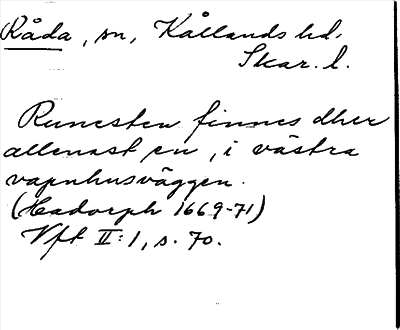 Råda, sn, Kållands hd,
Skar. l.
Runesten finnes dher
allenast en, i västra
vapnhusväggen.
(Hadorph 1669-71)
Vft II:1, s. 70.